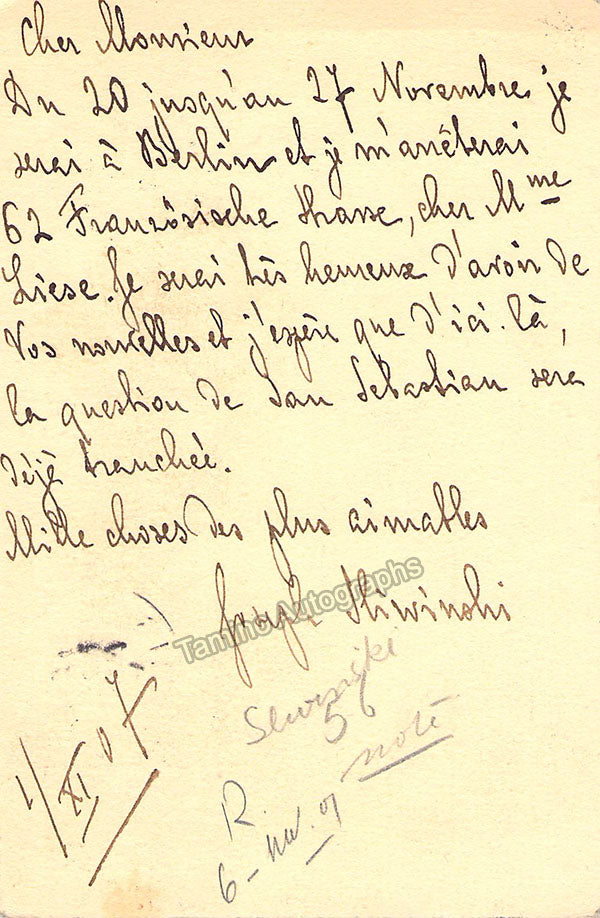 Cher Monsieur
Du 20 jusqu'au 27 Novembre je
serai à Berlin et je m'arrêterai
62 Französische Strasse, cher Mme
Liese. Je serai très heureux d'avoir de
Vos nouvelles et j'espère que d'ici là,
la question de San Sebastian sera
déjà tranchée.
Mille choses des plus aimables
Joseph Sliwinski
Tamino Autographs
1/XI 07
Sliwinski
56
noté
R.
6 - nov. 07